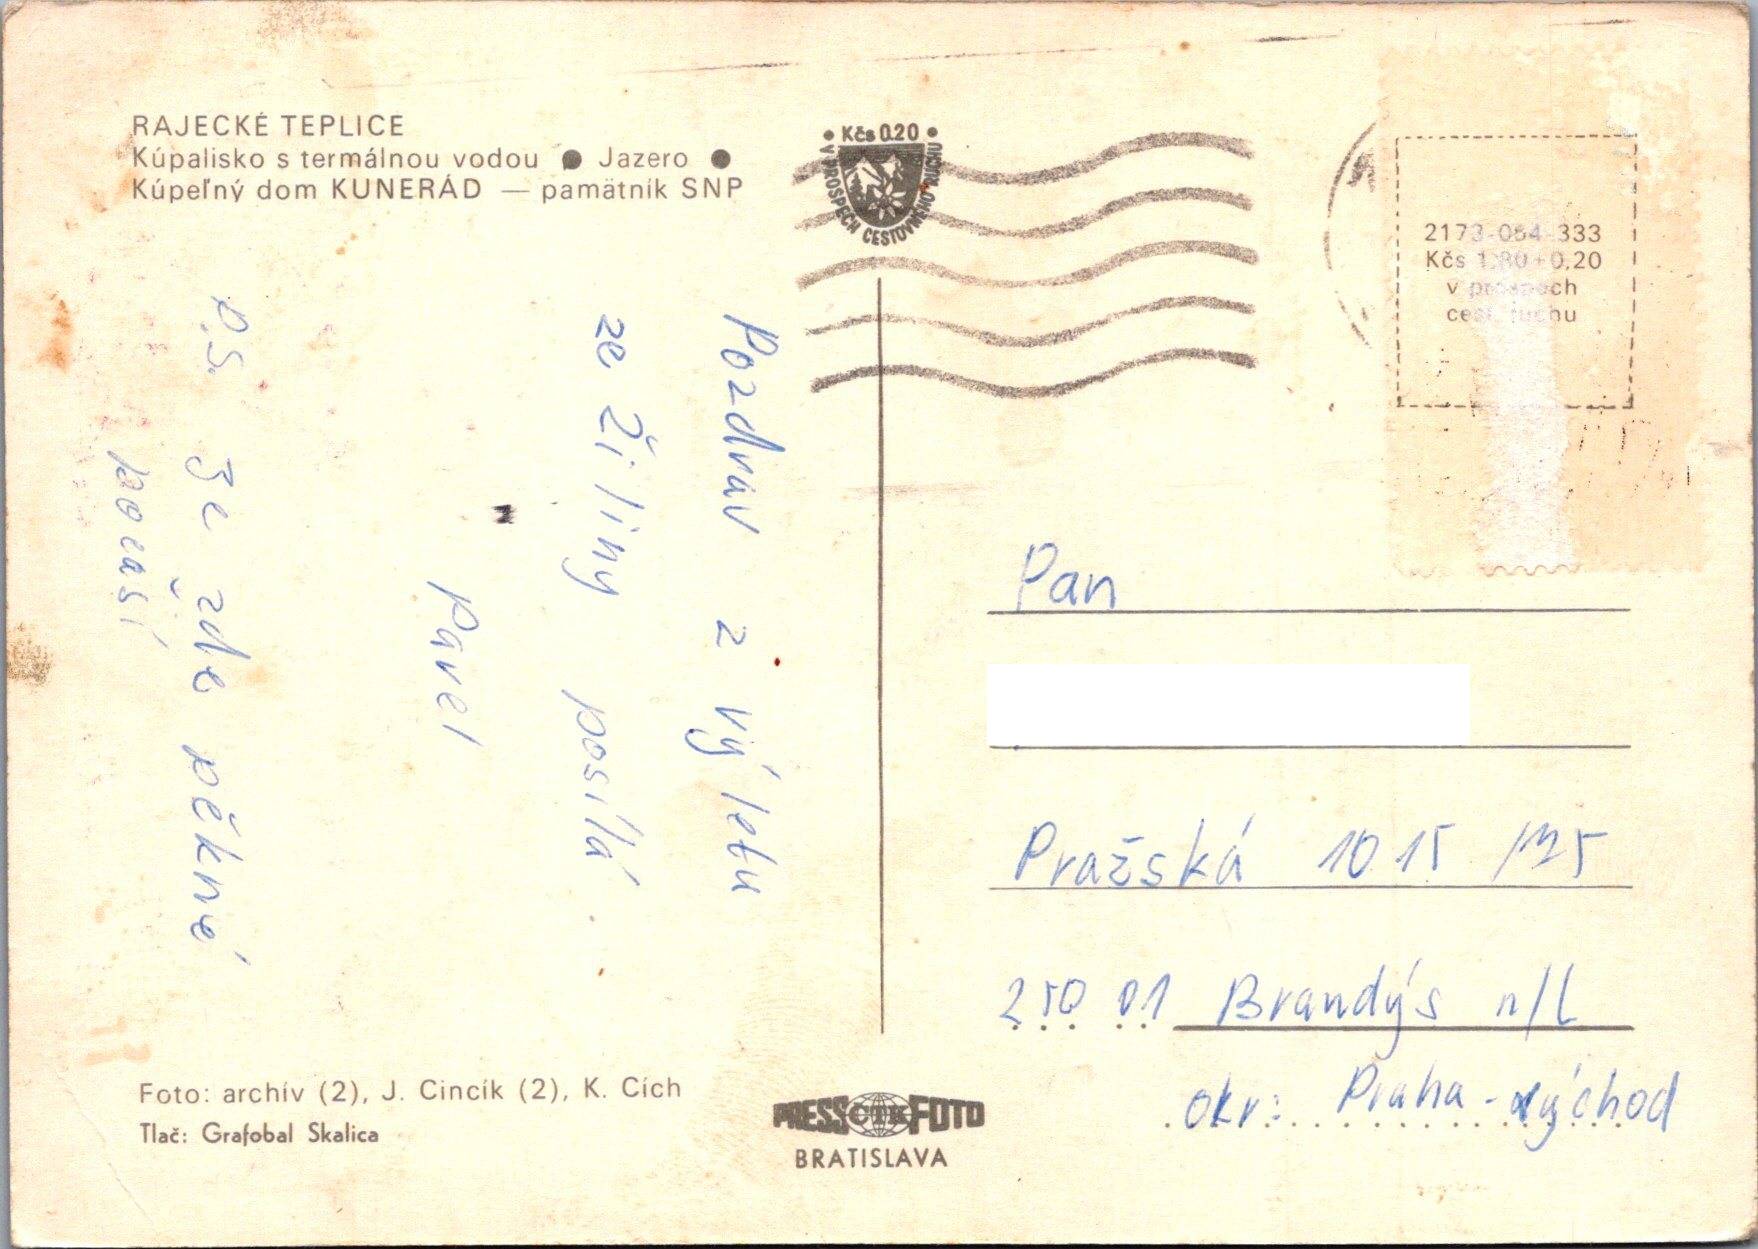 RAJECKÉ TEPLICE
Kúpalisko s termálnou vodou ● Jazero ●
Kúpeľný dom KUNERÁD — pamätník SNP
• Kčs 0.20 •
V PROSPECH CESTOVNÉHO RUCHU
2173-064-333
Kčs 1,80+0,20
v prospech
cest. ruchu
Pozdrav z výletu
ze Žiliny posílá
Pavel
P.S. Je zde pěkné
počasí
Pan
Pražská 1015 /
250 01 Brandýs n/L
okr: Praha-východ
Foto: archív (2), J. Cincík (2), K. Cích
Tlač: Grafobal Skalica
PRESS ČTK FOTO
BRATISLAVA